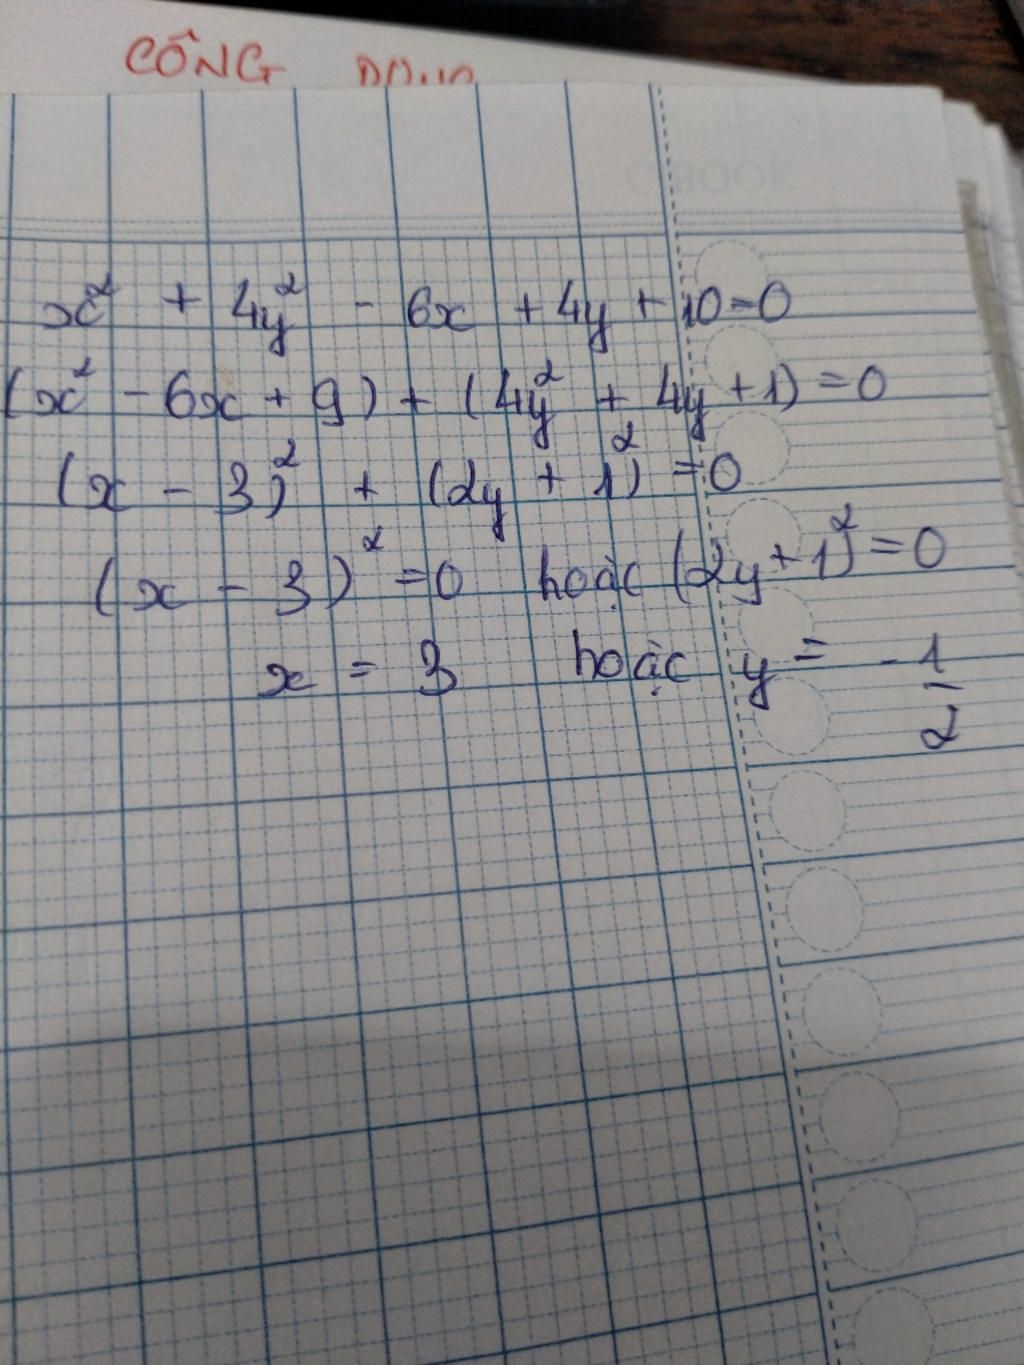 CÔNG
x² + 4y² - 6x + 4y + 10 = 0
(x² - 6x + 9) + (4y² + 4y + 1) = 0
(x - 3)² + (2y + 1)² = 0
(x - 3)² = 0 hoặc (2y + 1)² = 0
x = 3 hoặc y = -1/2